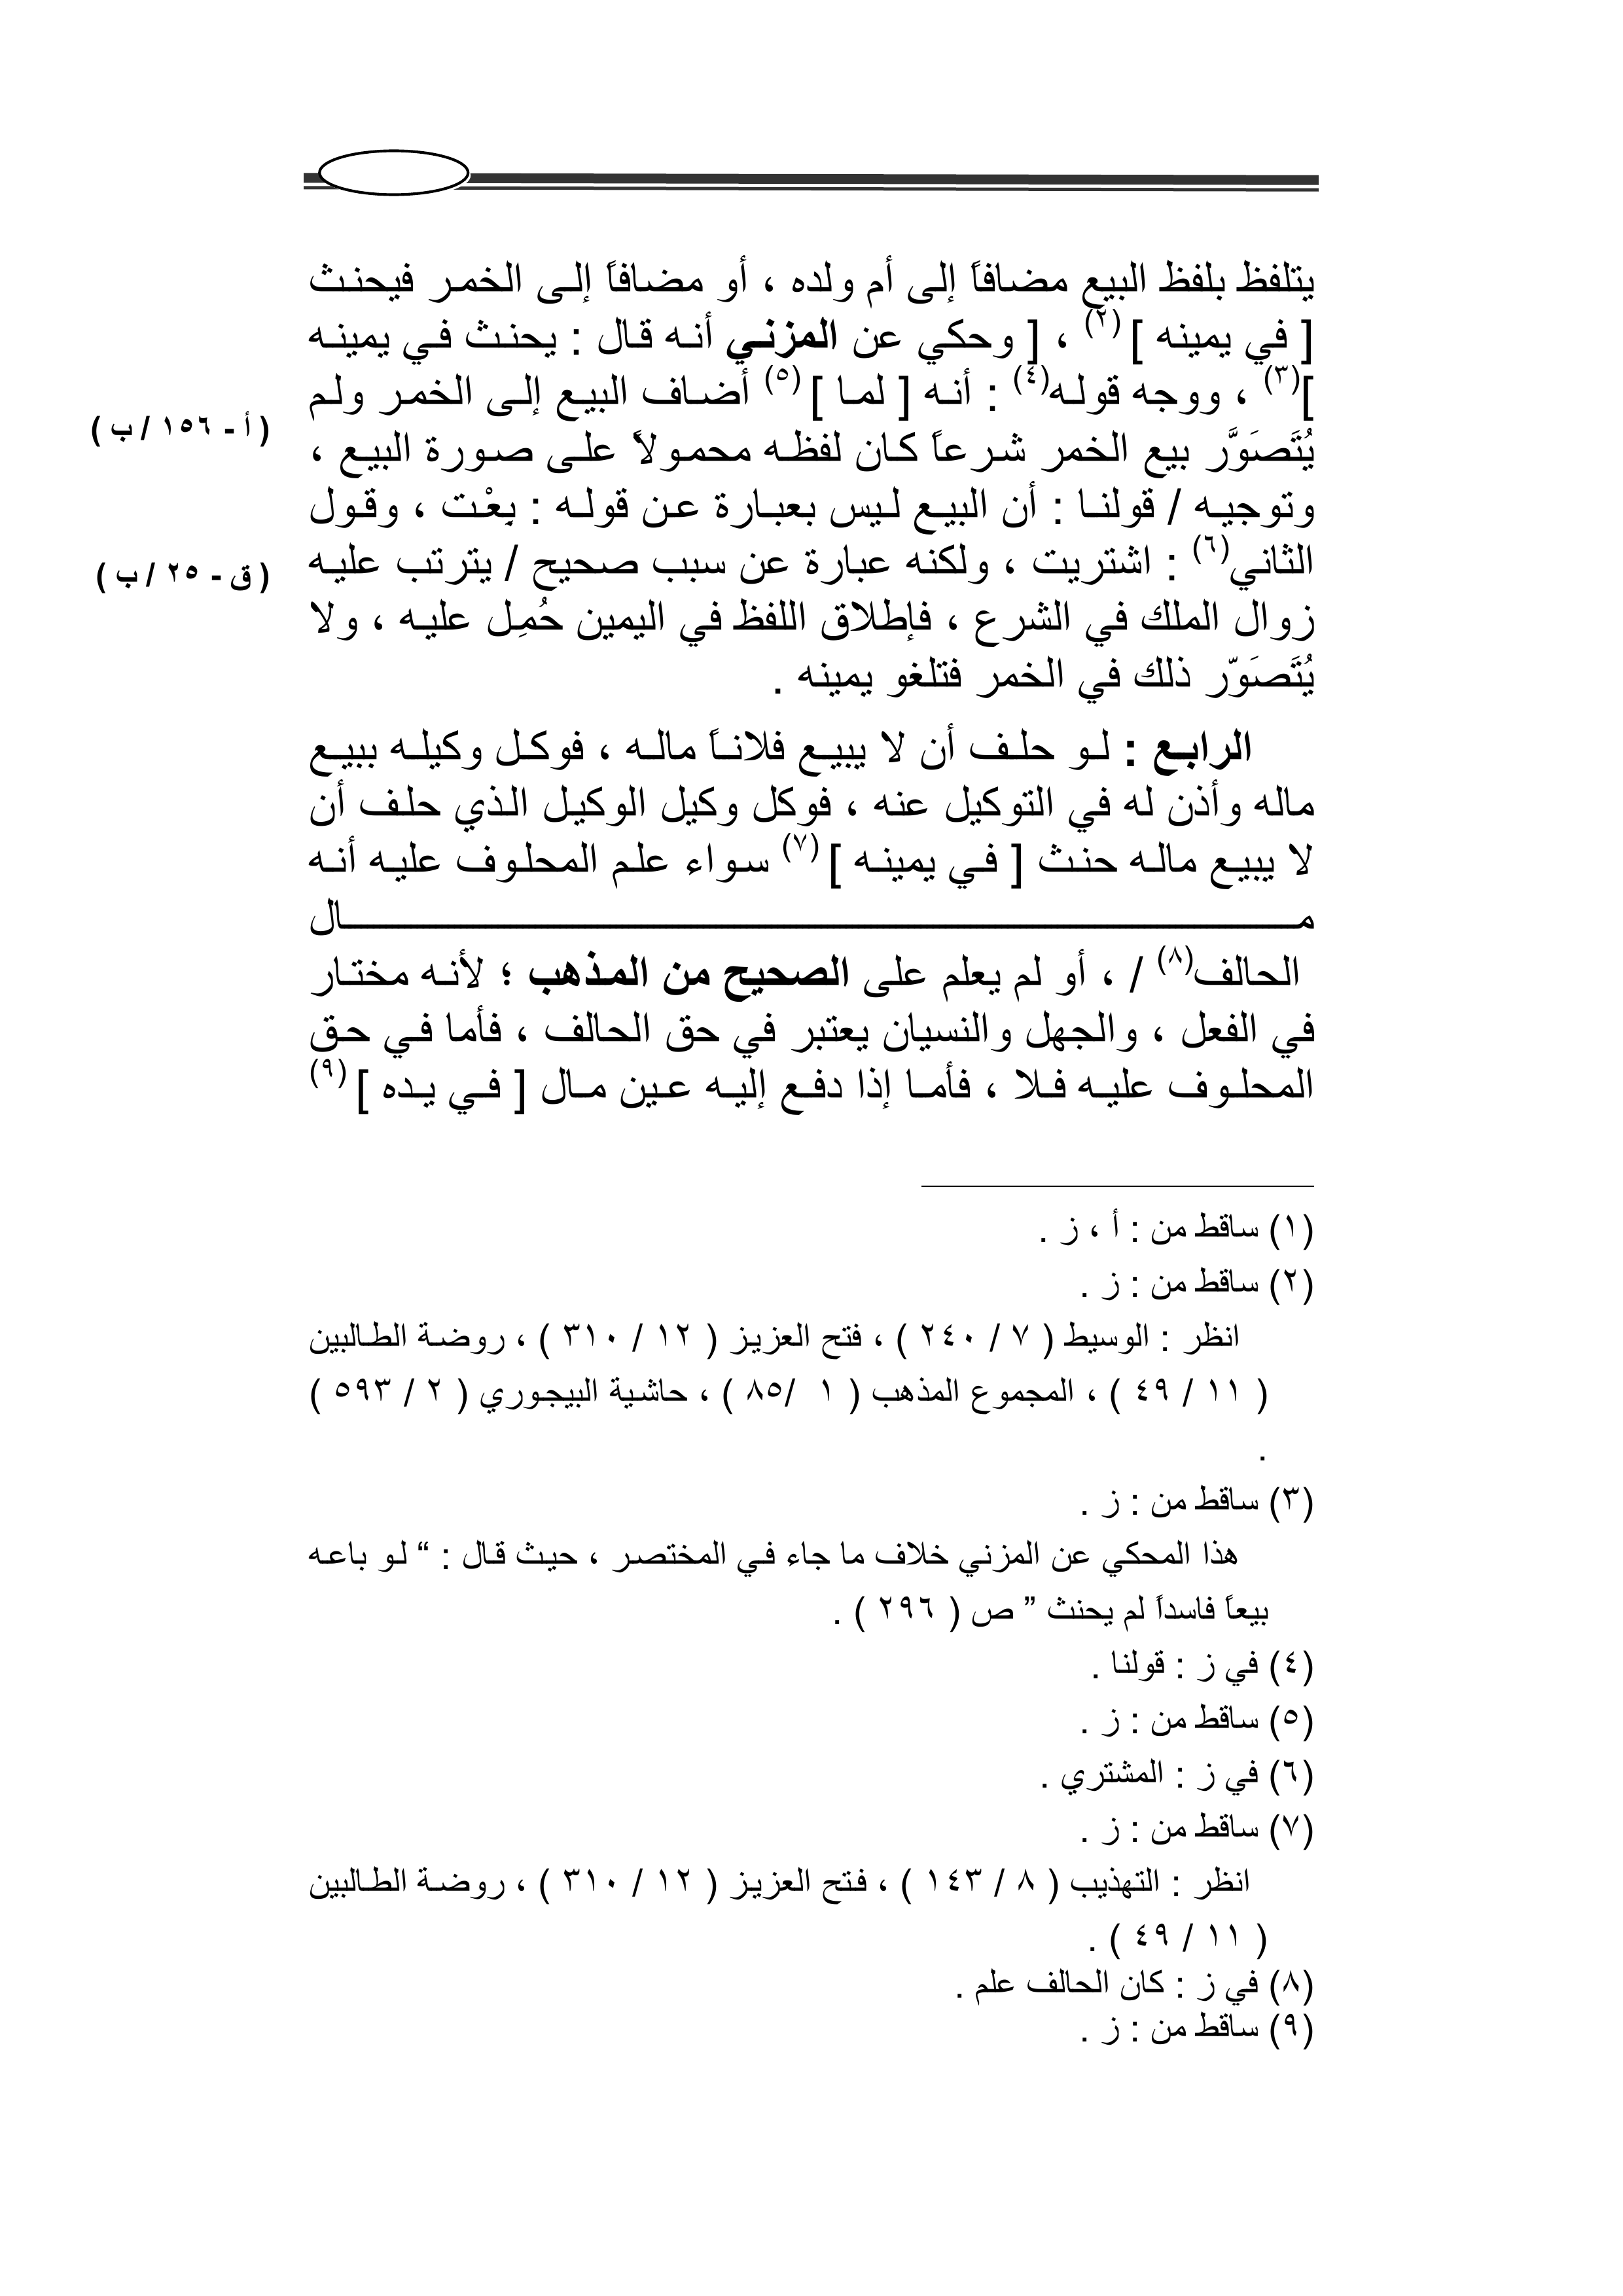 يتلفظ بلفظ البيع مضافاً إلى أم ولده ، أو مضافاً إلى الخمر فيحنث
[ في يمينه ] (٢) ، [ وحكي عن المزني أنه قال : يحنث في يمينه
](٣) ، ووجه قوله(٤) : أنه [ لما ] (٥) أضاف البيع إلى الخمر ولم
( أ - ١٥٦ / ب )
يُتَصَوَّر بيع الخمر شرعاً كان لفظه محمولاً على صورة البيع ،
وتوجيه / قولنا : أن البيع ليس بعبارة عن قوله : بِعْت ، وقول
الثاني(٦) : اشتريت ، ولكنه عبارة عن سبب صحيح / يترتب عليه
( ق - ٢٥ / ب )
زوال الملك في الشرع ، فإطلاق اللفظ في اليمين حُمِل عليه ، ولا
يُتَصَوّر ذلك في الخمر فتلغو يمينه .
الرابع : لو حلف أن لا يبيع فلاناً ماله ، فوكل وكيله ببيع
ماله وأذن له في التوكيل عنه ، فوكل وكيل الوكيل الذي حلف أن
لا يبيع ماله حنث [ في يمينه ] (٧) سواء علم المحلوف عليه أنه
مال
الحالف(٨) / ، أو لم يعلم على الصحيح من المذهب ؛ لأنه مختار
في الفعل ، والجهل والنسيان يعتبر في حق الحالف ، فأما في حق
المحلوف عليه فلا ، فأما إذا دفع إليه عين مال [ في يده ] (٩)
(١) ساقط من : أ ، ز .
(٢) ساقط من : ز .
انظر : الوسيط ( ٧ / ٢٤٠ ) ، فتح العزيز ( ١٢ / ٣١٠ ) ، روضة الطالبين
( ١١ / ٤٩ ) ، المجموع المذهب ( ١ /٨٥ ) ، حاشية البيجوري ( ٢ / ٥٩٣ )
.
(٣) ساقط من : ز .
هذا المحكي عن المزني خلاف ما جاء في المختصر ، حيث قال : “ لو باعه
بيعاً فاسداً لم يحنث ” ص ( ٢٩٦ ) .
(٤) في ز : قولنا .
(٥) ساقط من : ز .
(٦) في ز : المشتري .
(٧) ساقط من : ز .
انظر : التهذيب ( ٨ / ١٤٣ ) ، فتح العزيز ( ١٢ / ٣١٠ ) ، روضة الطالبين
( ١١ / ٤٩ ) .
(٨) في ز : كان الحالف علم .
(٩) ساقط من : ز .